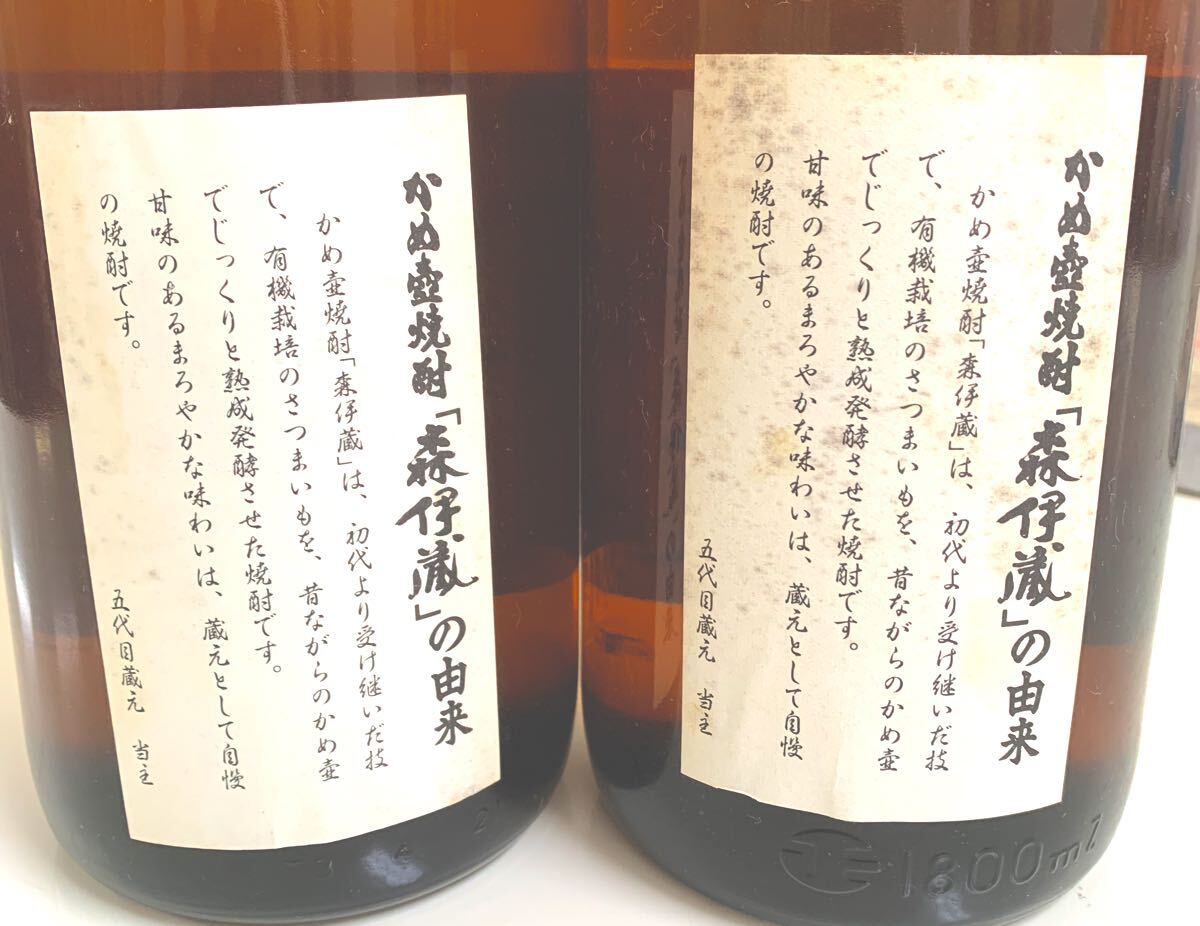 かめ壺焼酎「森伊蔵」の由来
かめ壺焼酎「森伊蔵」は、初代より受け継いだ技
で、有機栽培のさつまいもを、昔ながらのかめ壺
でじっくりと熟成発酵させた焼酎です。
甘味のあるまろやかな味わいは、蔵元として自慢
の焼酎です。
五代目蔵元 当主
かめ壺焼酎「森伊蔵」の由来
かめ壺焼酎「森伊蔵」は、初代より受け継いだ技
で、有機栽培のさつまいもを、昔ながらのかめ壺
でじっくりと熟成発酵させた焼酎です。
甘味のあるまろやかな味わいは、蔵元として自慢
の焼酎です。
五代目蔵元 当主
1800ml